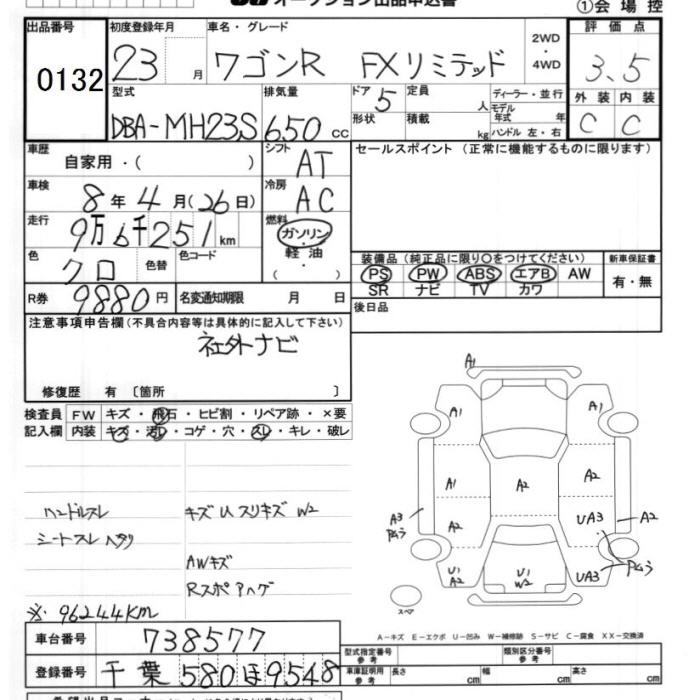 オークション出品申込書
①会場控
出品番号 初度登録年月 車名・グレード 2WD・4WD 評価点
0132 23月 ワゴンR FXリミテッド 3.5
型式 排気量 ドア 5 定員 人 ディーラー・並行 外装 内装
DBA-MH23S 650cc 形状 積載 kg モデル年式 年 ハンドル 左・右 C C
車歴 自家用・( ) シフト AT セールスポイント (正常に機能するものに限ります)
車検 8年4月(26日) 冷房 AC
走行 9万6千251km 燃料 ガソリン・軽油・( )
色 クロ 色替 色コード 装備品 (純正品に限り○をつけてください) 新車保証書
PS PW ABS エアB AW 有・無
SR ナビ TV カワ
R券 9880円 名変通知期限 月 日 後日品
注意事項申告欄(不具合内容等は具体的に記入して下さい)
社外ナビ
修復歴 有 〔箇所 〕
検査員 FW キズ・飛石・ヒビ割・リペア跡・×要
記入欄 内装 キズ・汚レ・コゲ・穴・スレ・キレ・破レ
A1
A1 A1
A1 A2 A2
A3 A2 UA3 A2
U1 A2 U1 W2 UA3
スペア
ハンドルスレ キズUスリキズ W2
シートスレ ヘタリ
AWキズ
Rスポアハゲ
※96244KM
A-キズ E-エクボ U-凹み W-補修跡 S-サビ C-腐食 XX-交換済
車台番号 738577
登録番号 千葉 580 ほ 9548
型式指定番号 参考 類別区分番号 参考
車庫証明用 参考 長さ cm 幅 cm 高さ cm